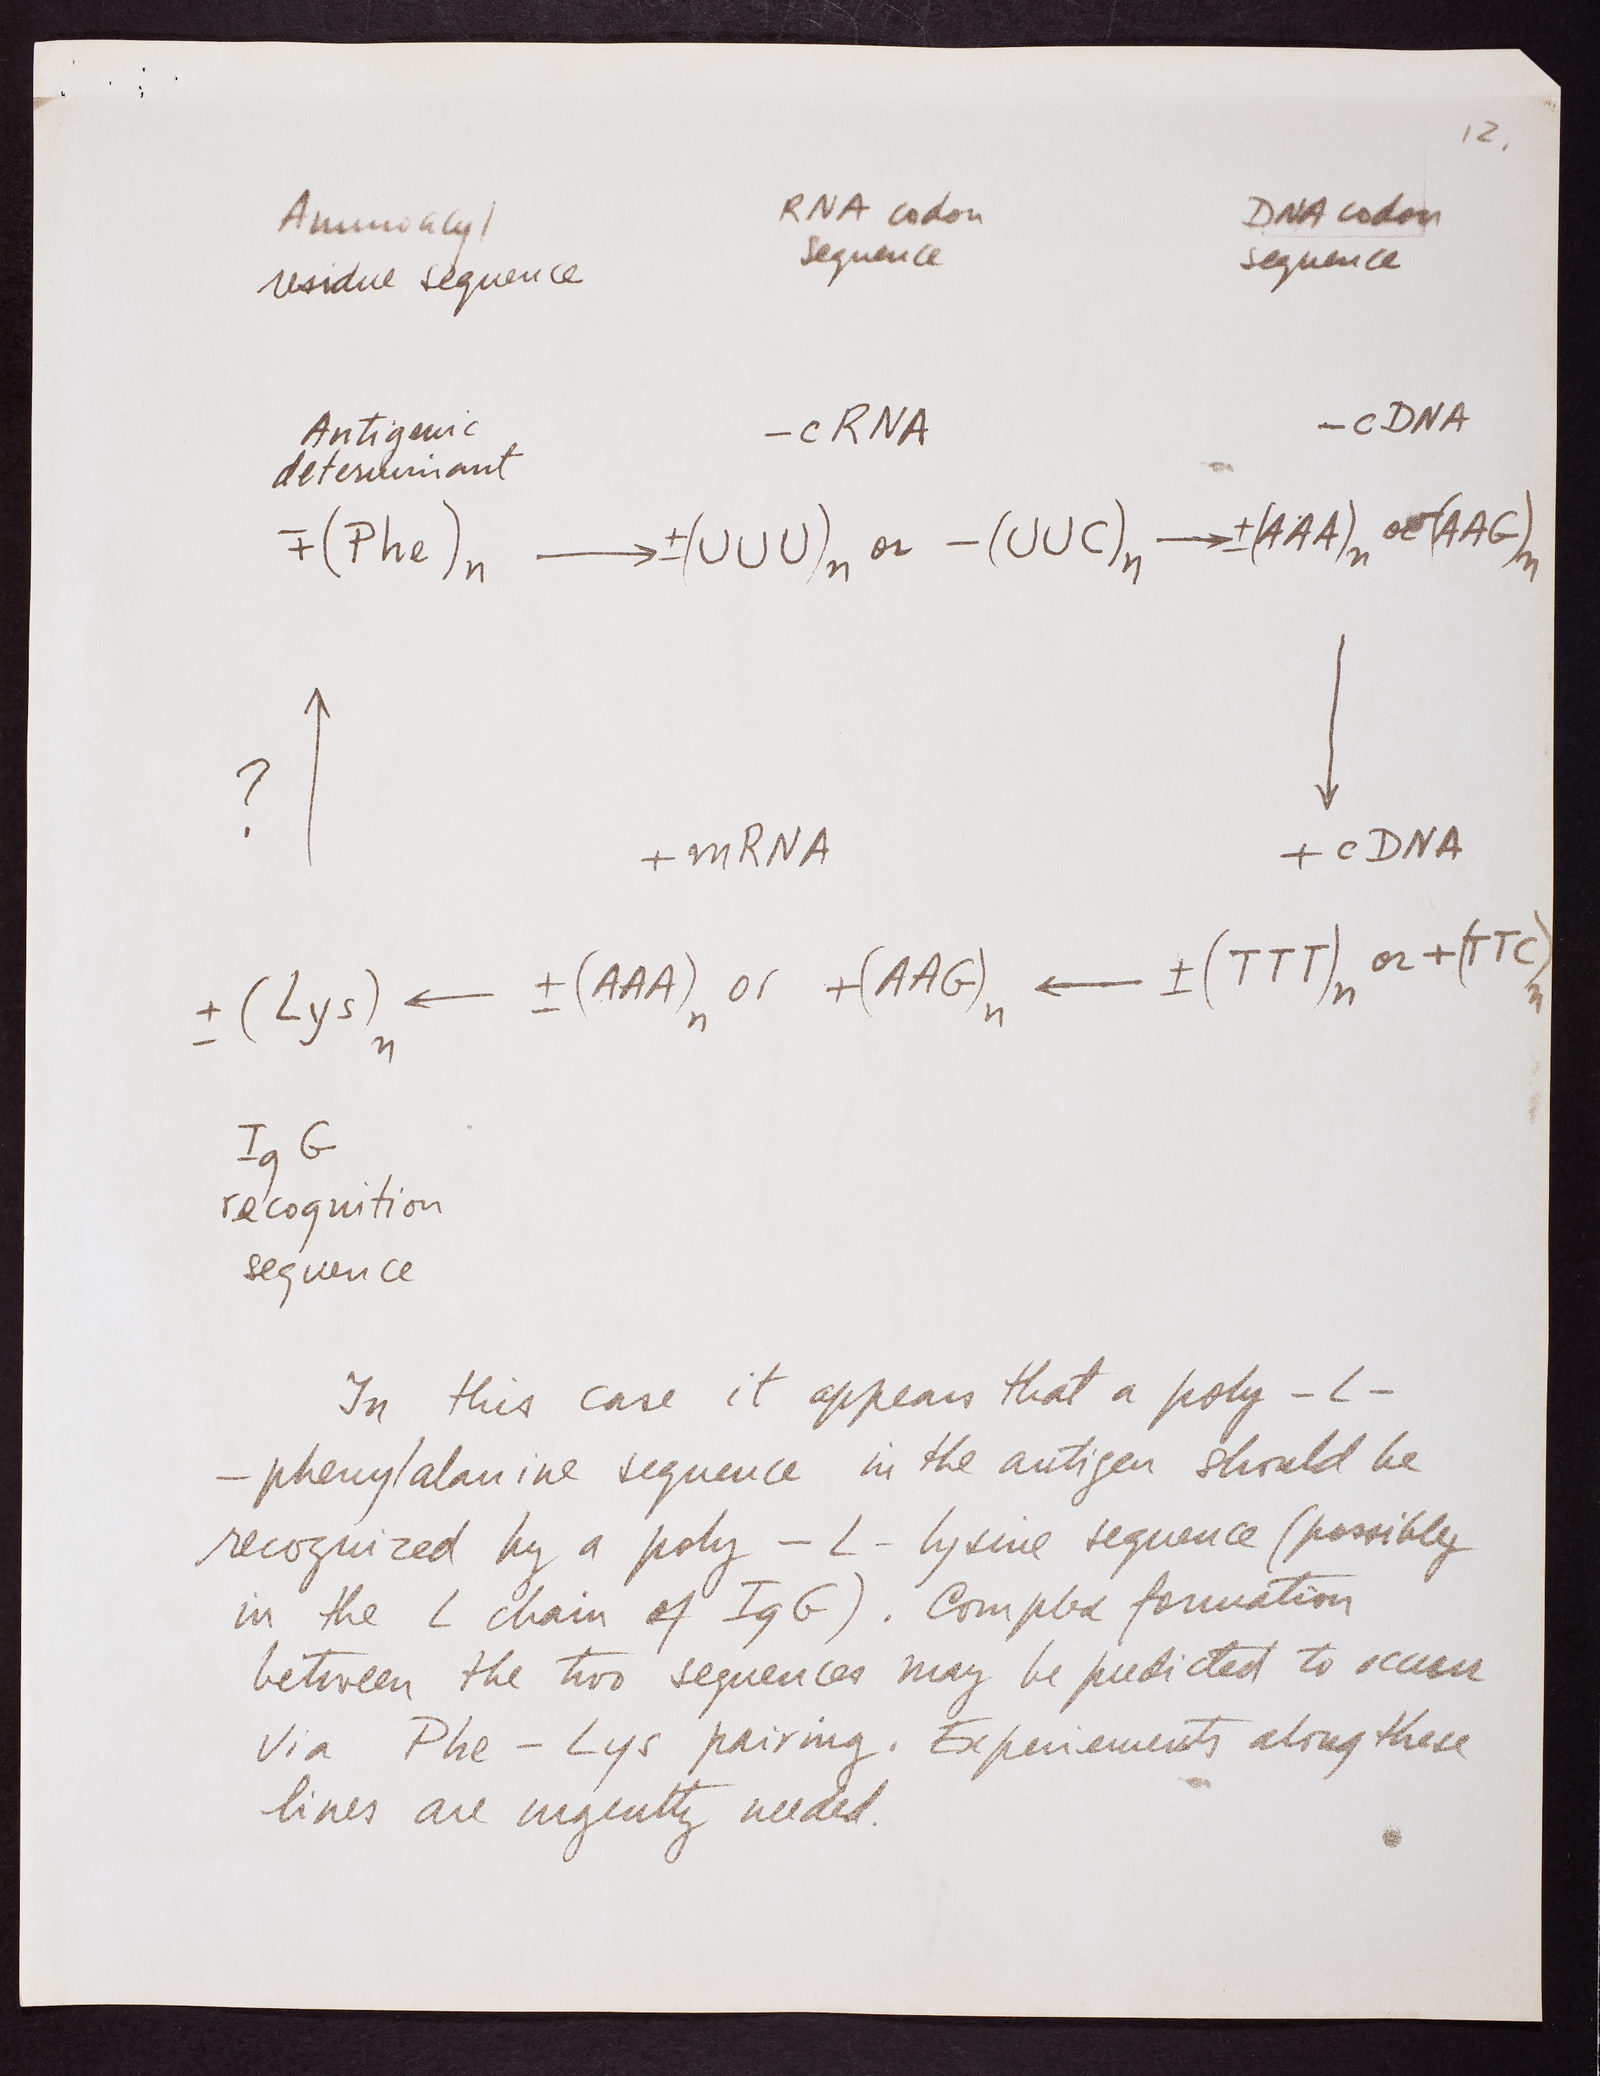 12.
Aminoacyl RNA codon DNA codon
residue sequence sequence sequence
Antigenic -cRNA -cDNA
determinant
∓(Phe)n ⟶ ±(UUU)n or -(UUC)n ⟶ ±(AAA)n or -(AAG)n
↑ ↓
?
+mRNA +cDNA
±(Lys)n ⟵ ±(AAA)n or +(AAG)n ⟵ ±(TTT)n or +(TTC)n
IgG
recognition
sequence
In this case it appears that a poly-L-
-phenylalanine sequence in the antigen should be
recognized by a poly-L-lysine sequence (possibly
in the L chain of IgG). Complex formation
between the two sequences may be predicted to occur
via Phe-Lys pairing. Experiements along these
lines are urgently needed.